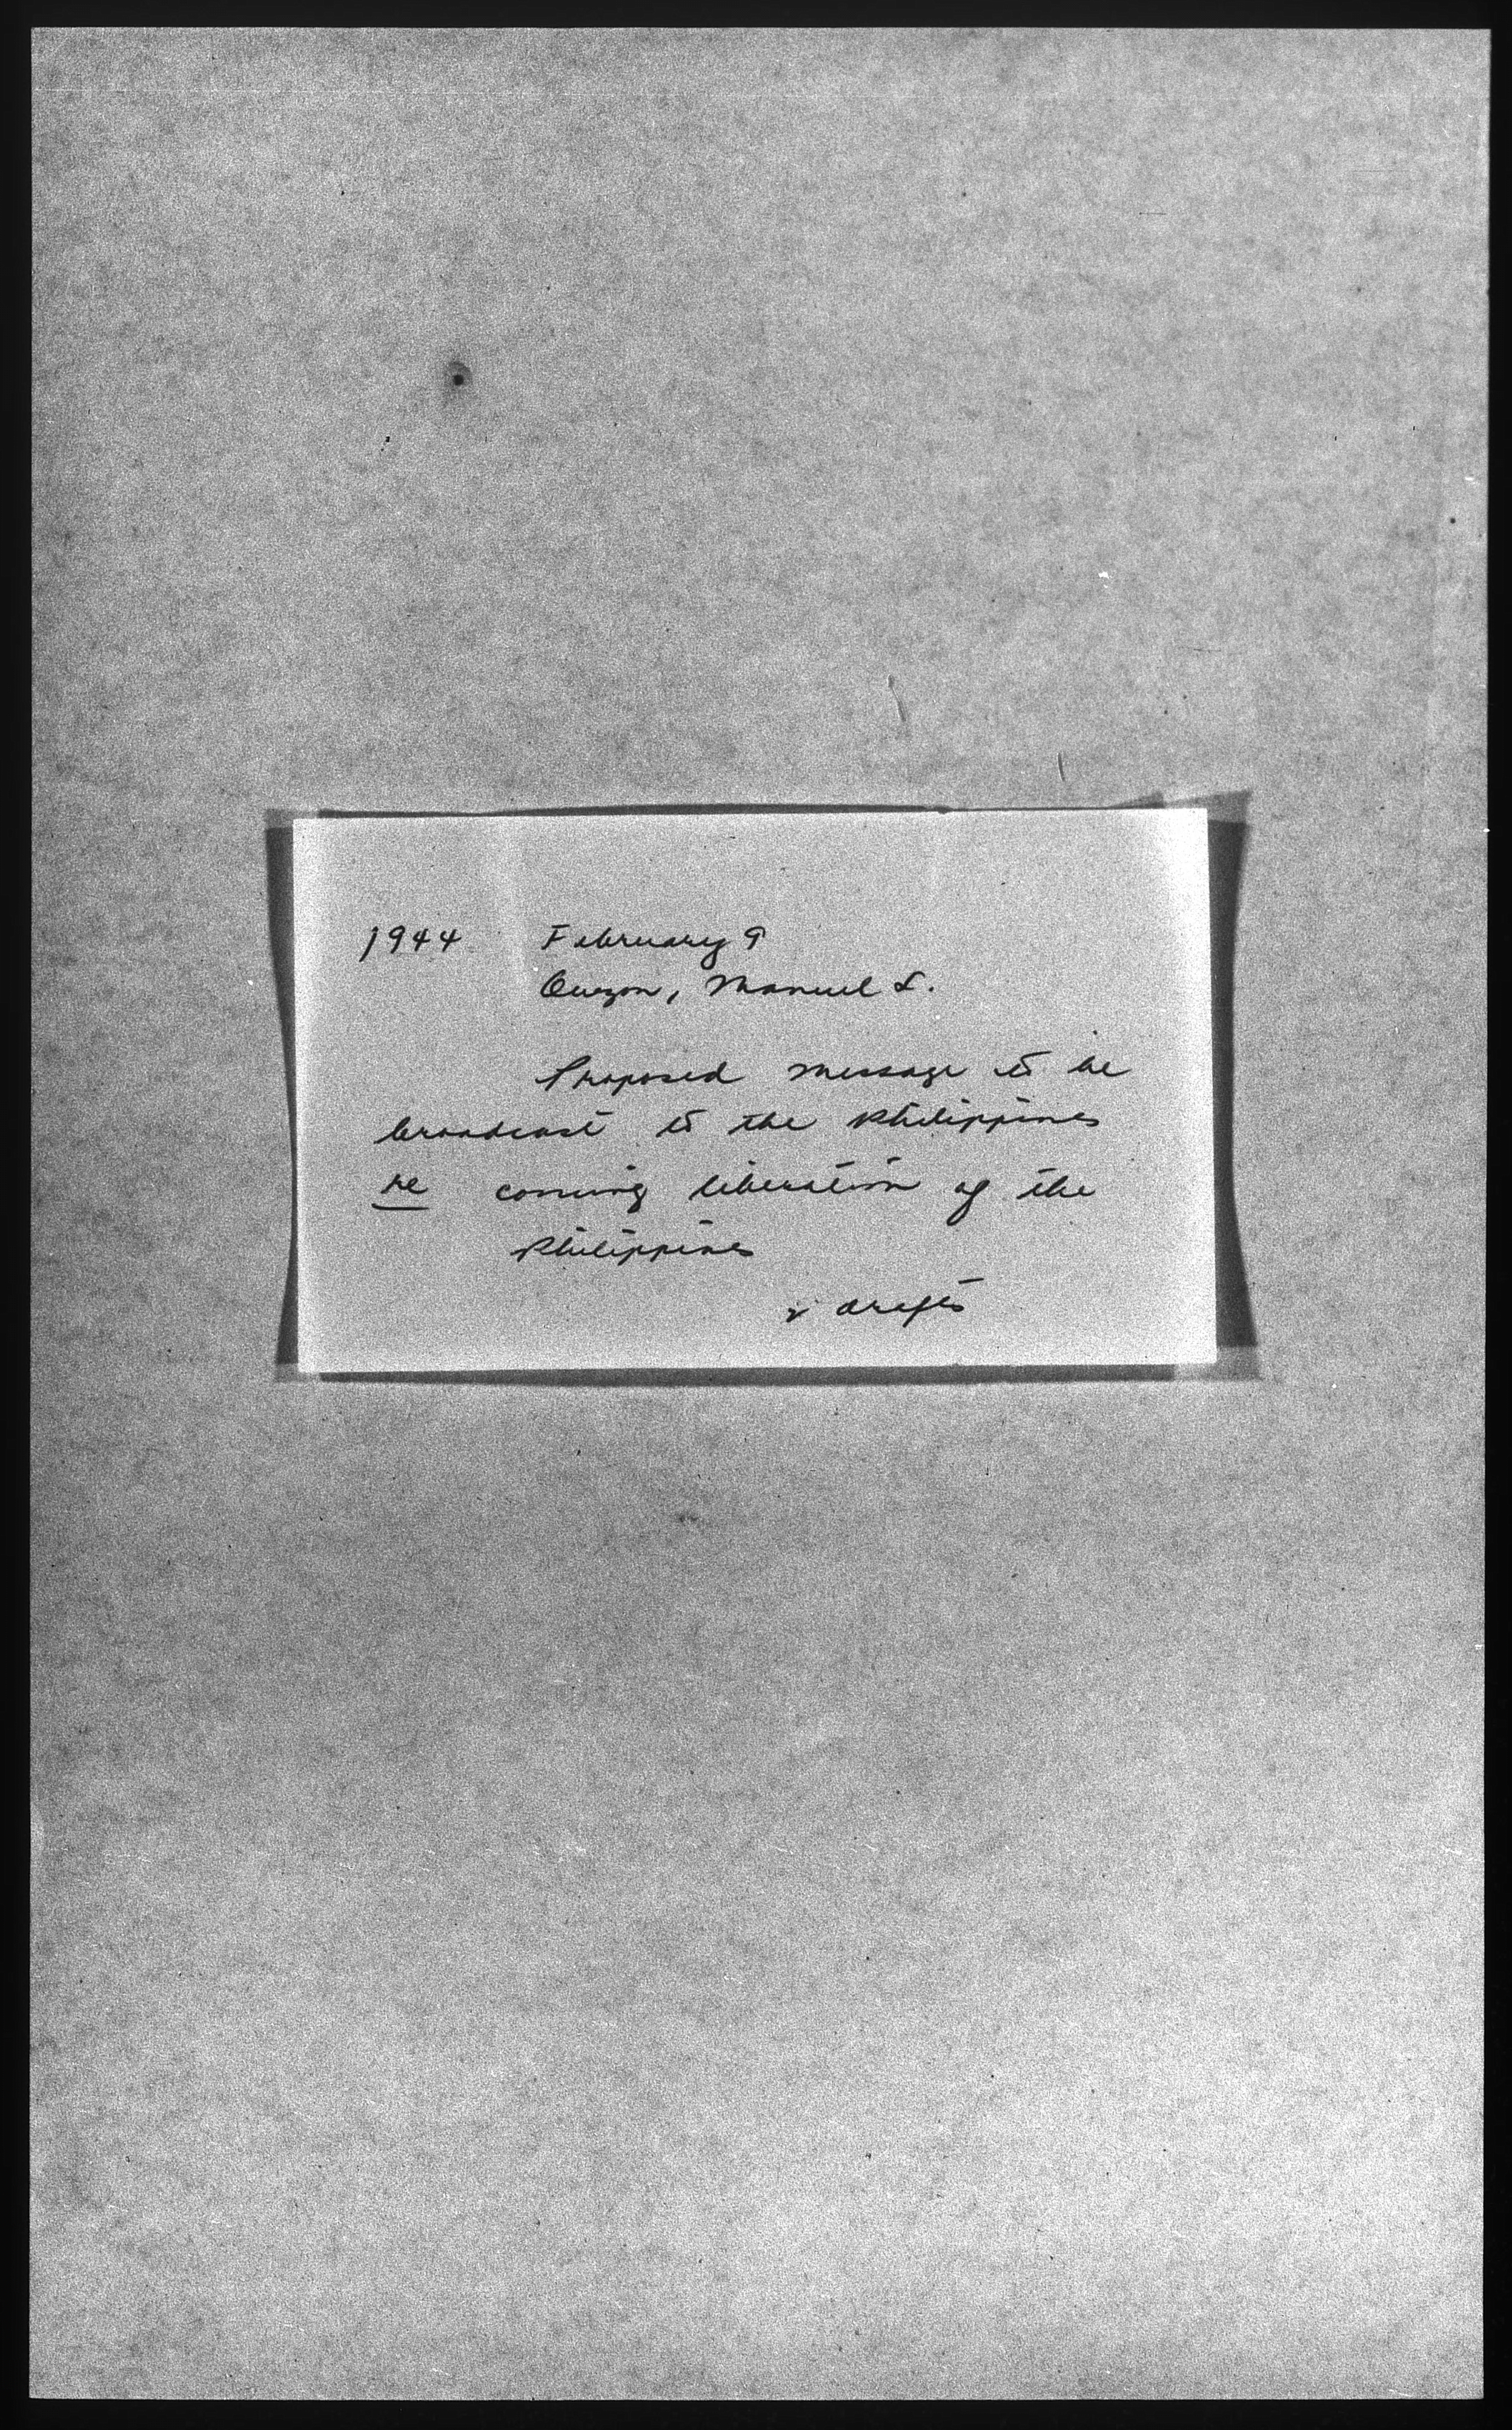 1944 February 9
Quezon, Manuel L.
Proposed message to be
broadcast to the Philippines
re coming liberation of the
Philippines
2 drafts